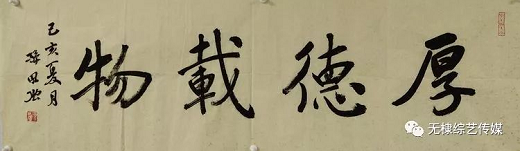 厚德載物
己亥夏月
无棣综艺传媒